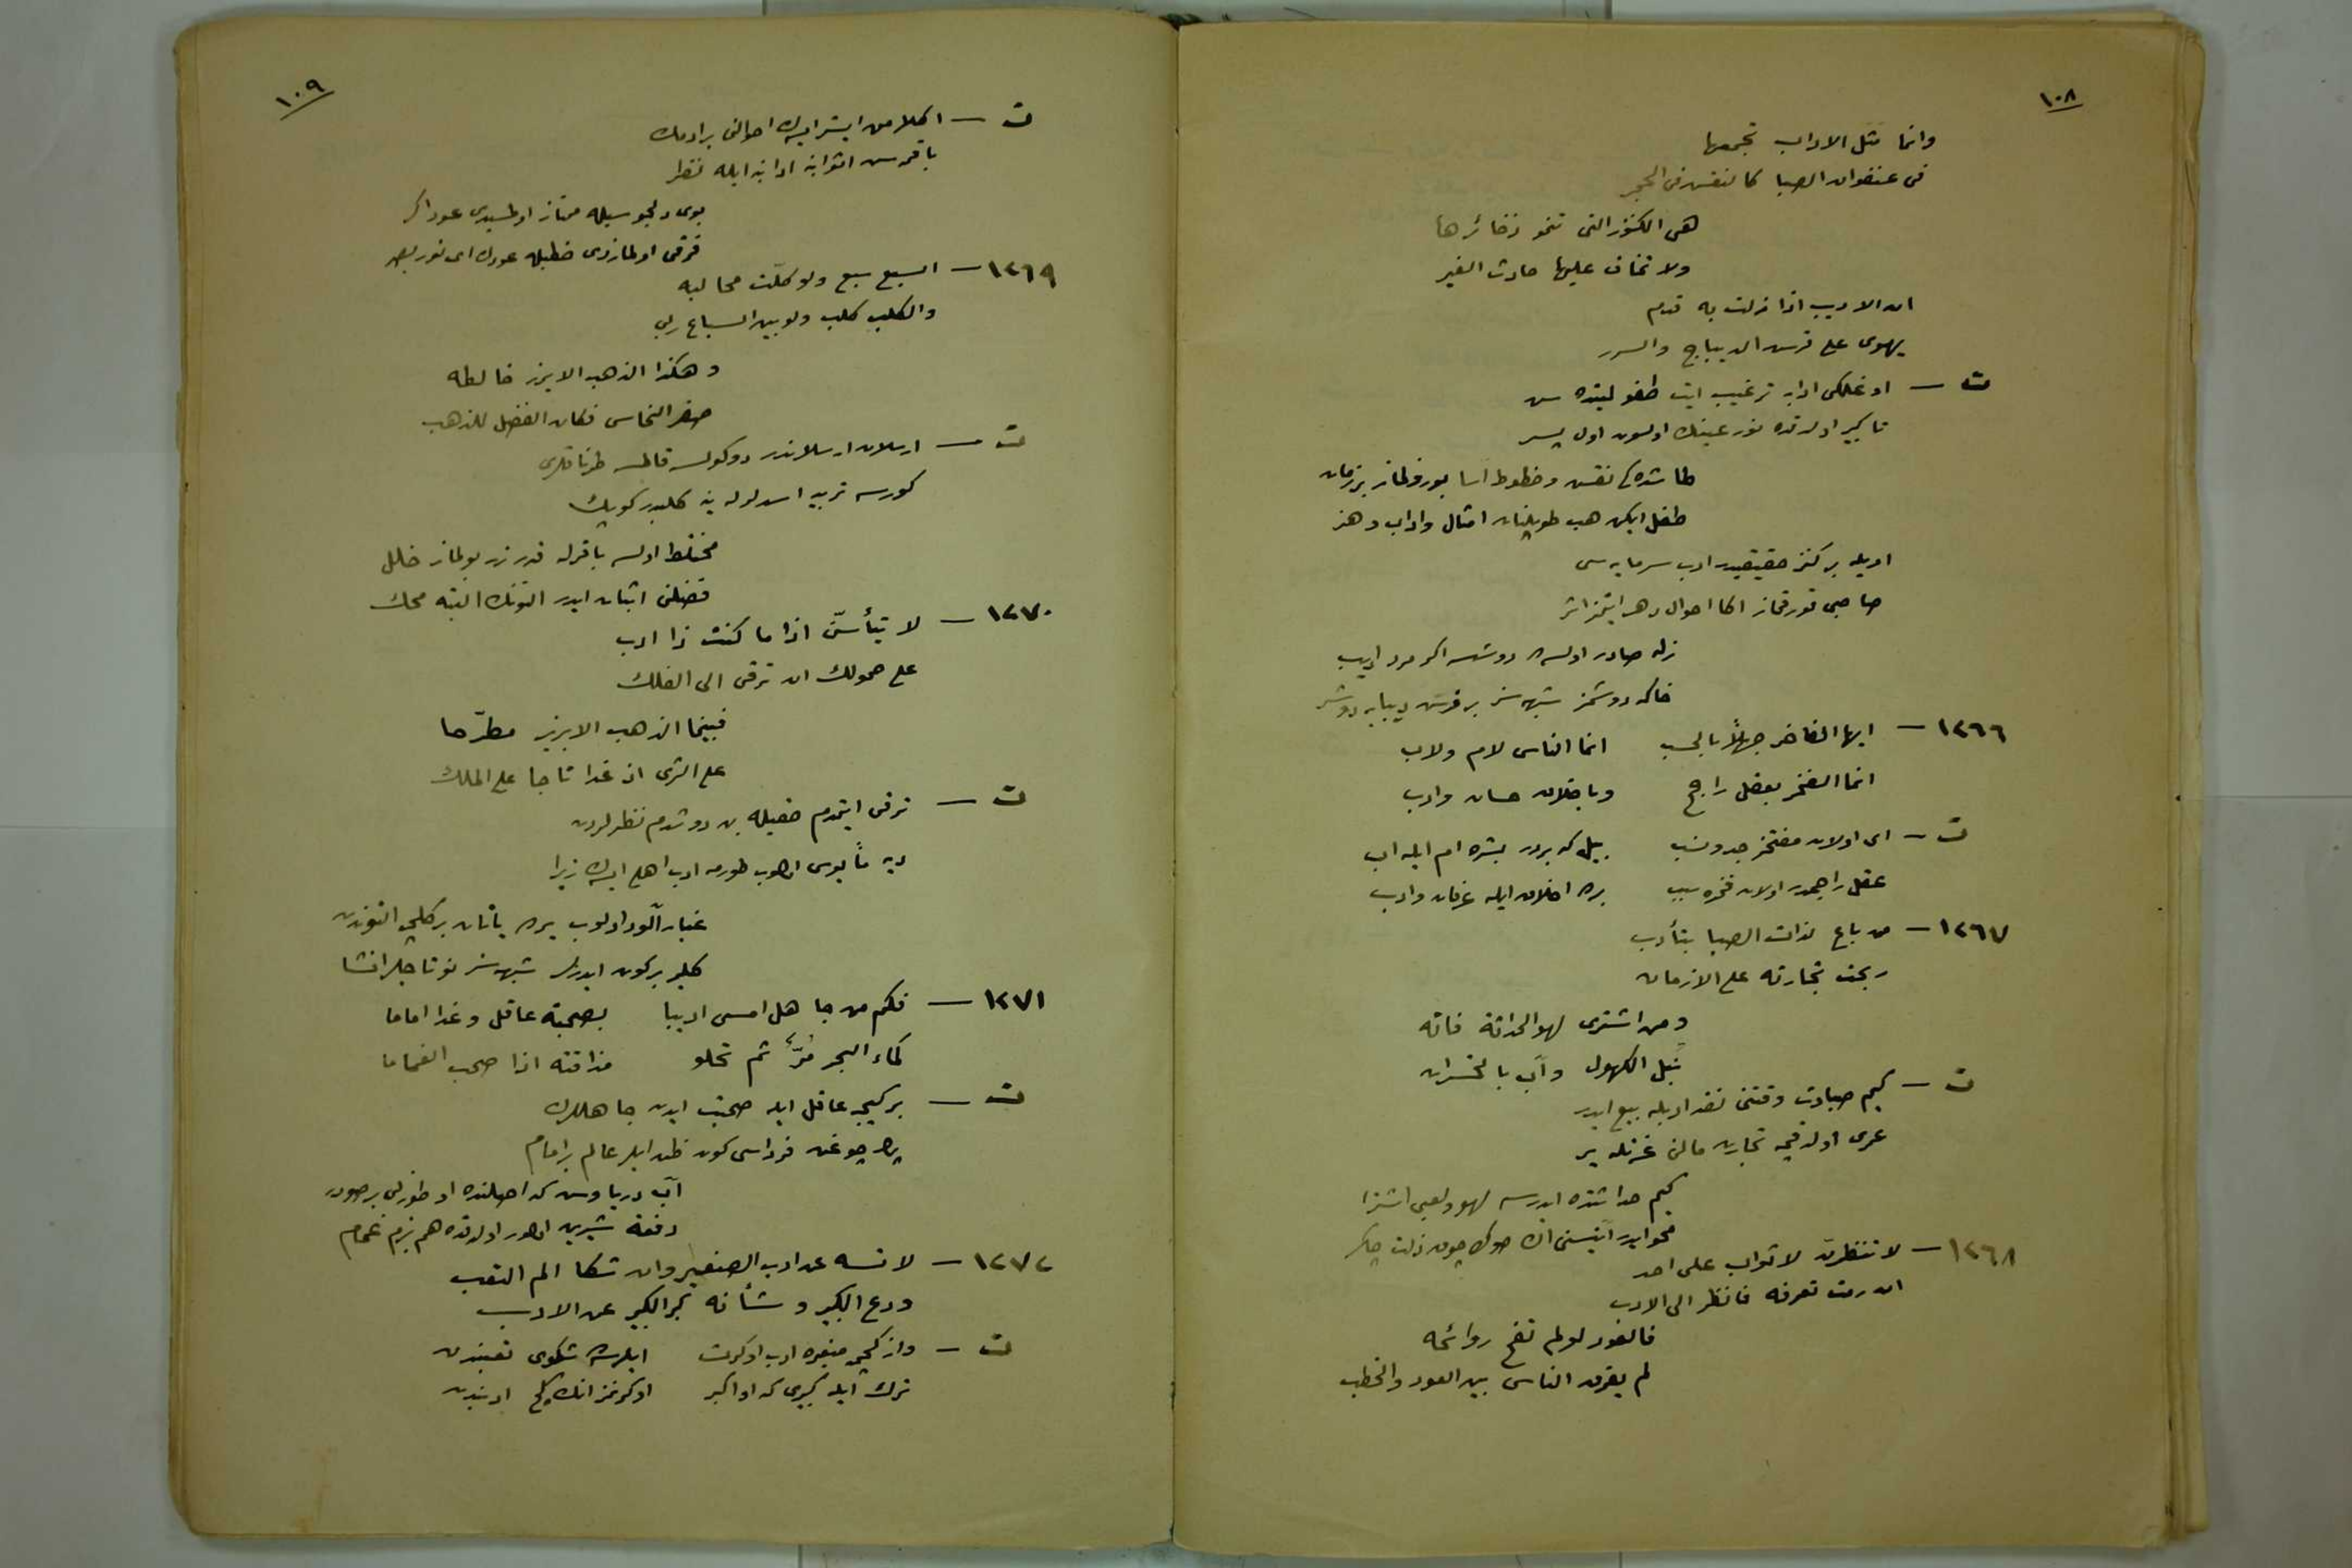 ١٠٨
وانما مثل الاداب تجمعها
فى عنفوان الصبا كالنقش فى الحجر
هى الكنوز التى تنمو ذخائرها
ولا تخاف عليها حادث الغير
ان الاديب اذا زلت به قدم
يهوى على فرش الديباج والسرر
ت — اوغلكى ادابه ترغيب ايت طفوليتده سن
تا كبير اولدقده نور عينك اولسون اول پسر
طاشده كى نقش وخطوط اسا بوزولماز بر زمان
طفل ايكن هب طوپلنان امثال واداب وهنر
اويله بر كنز حقيقيدر ادب سرمايه سى
صاحبى قورقماز اكا احوال دهر ايتمز اثر
زله صادر اولسه دوشسه اكر مرد اديب
خاكه دوشمز شبهه سز بر فرش ديبايه دوشر
١٢٦٦ — ايها الفاخر جهلاً بالحسب انما الناس لام ولاب
انما الفخر بعقل راجح وباخلاق حسان وادب
ت — اى اولان مفتخر جد ونسب بيل كه بردر بشره ام ايله اب
عقل راجحدر اولان فخره سبب بره اخلاق ايله عرفان وادب
١٢٦٧ — من باع لذات الصبا بتأدب
ربحت تجارته على الازمان
ومن اشترى لهو الحداثة فاته
نبل الكهول وآب بالخسران
ت — كيم صباوت وقتنى نقد ادبله بيع ايدر
عمرى اولدقجه تجارت مالنى عزتله ير
كيم حداثتده ايدرسه لهو ولعبى اشترا
محو ايدر آتيسنى انك صوك چوق ذلت چكر
١٢٦٨ — لا تنظرن لاثواب على احد
ان رمت تعرفه فانظر الى الادب
فالعود لو لم تفح روائحه
لم يفرق الناس بين العود والحطب
١٠٩
ت — اكلامق ايستر ايسه ك احوالنى بر ادمك
باقمه سن اثوابنه ادابنه ايله نظر
بوى دلجوسيله ممتاز اولمسيدى عود اكر
فرقى اولمازدى حطبله عودك اى نور بصر
١٢٦٩ — السبع سبع ولو كلّت مخالبه
والكلب كلب ولو بين السباع ربى
وهكذا الذهب الابريز خالطه
صفر النحاس فكان الفضل للذهب
ت — ارسلان ارسلاندر دوكولسه قالمسه طرناقلرى
كورسه تربيه اسدلرله ينه كلبدر كوپك
مختلط اولسه باقرله قدر زر بولماز خلل
فضلنى اثبات ايدر التونك البته محك
١٢٧٠ — لا تيأسنّ اذا ما كنت ذا ادب
على خمولك ان ترقى الى الفلك
فبينما الذهب الابريز مطرّحا
على الثرى اذ غدا تاجا على الملك
ت — ترقى ايتمدم حقيله بن دوشدم نظرلردن
ديه مأيوس اولوب طورمه ادب اهلى ايسه ك زيرا
غبار آلود اولوب يره ياتان بر كلچه التوندن
كلير بركون ايدرلر شبهه سز نو تاجلر انشا
١٢٧١ — فكم من جاهل امسى اديبا بصحبة عاقل وغدا اماما
كماء البحر مُرٌّ ثم تحلو مذاقته اذا صحب الغماما
ت — بر كيجه عاقل ايله صحبت ايدن جاهللرك
فرداسى كون ظن ايلر عالم بر امام
آب درياوش كه اصلنده او طوزلى بر صودر
دفعة شيرين اولور اولدقده هم بزم غمام
١٢٧٢ — لا تسه عن ادب الصغير وان شكا الم التعب
ودع الكبير وشأنه كبر الكبير عن الادب
ت — واز كچمه صغيره ادب اوكرت ايلرسه شكوى تعبندن
ترك ايله كبيرى كه او اكبر اوكرنمز انك كچ ادبندن